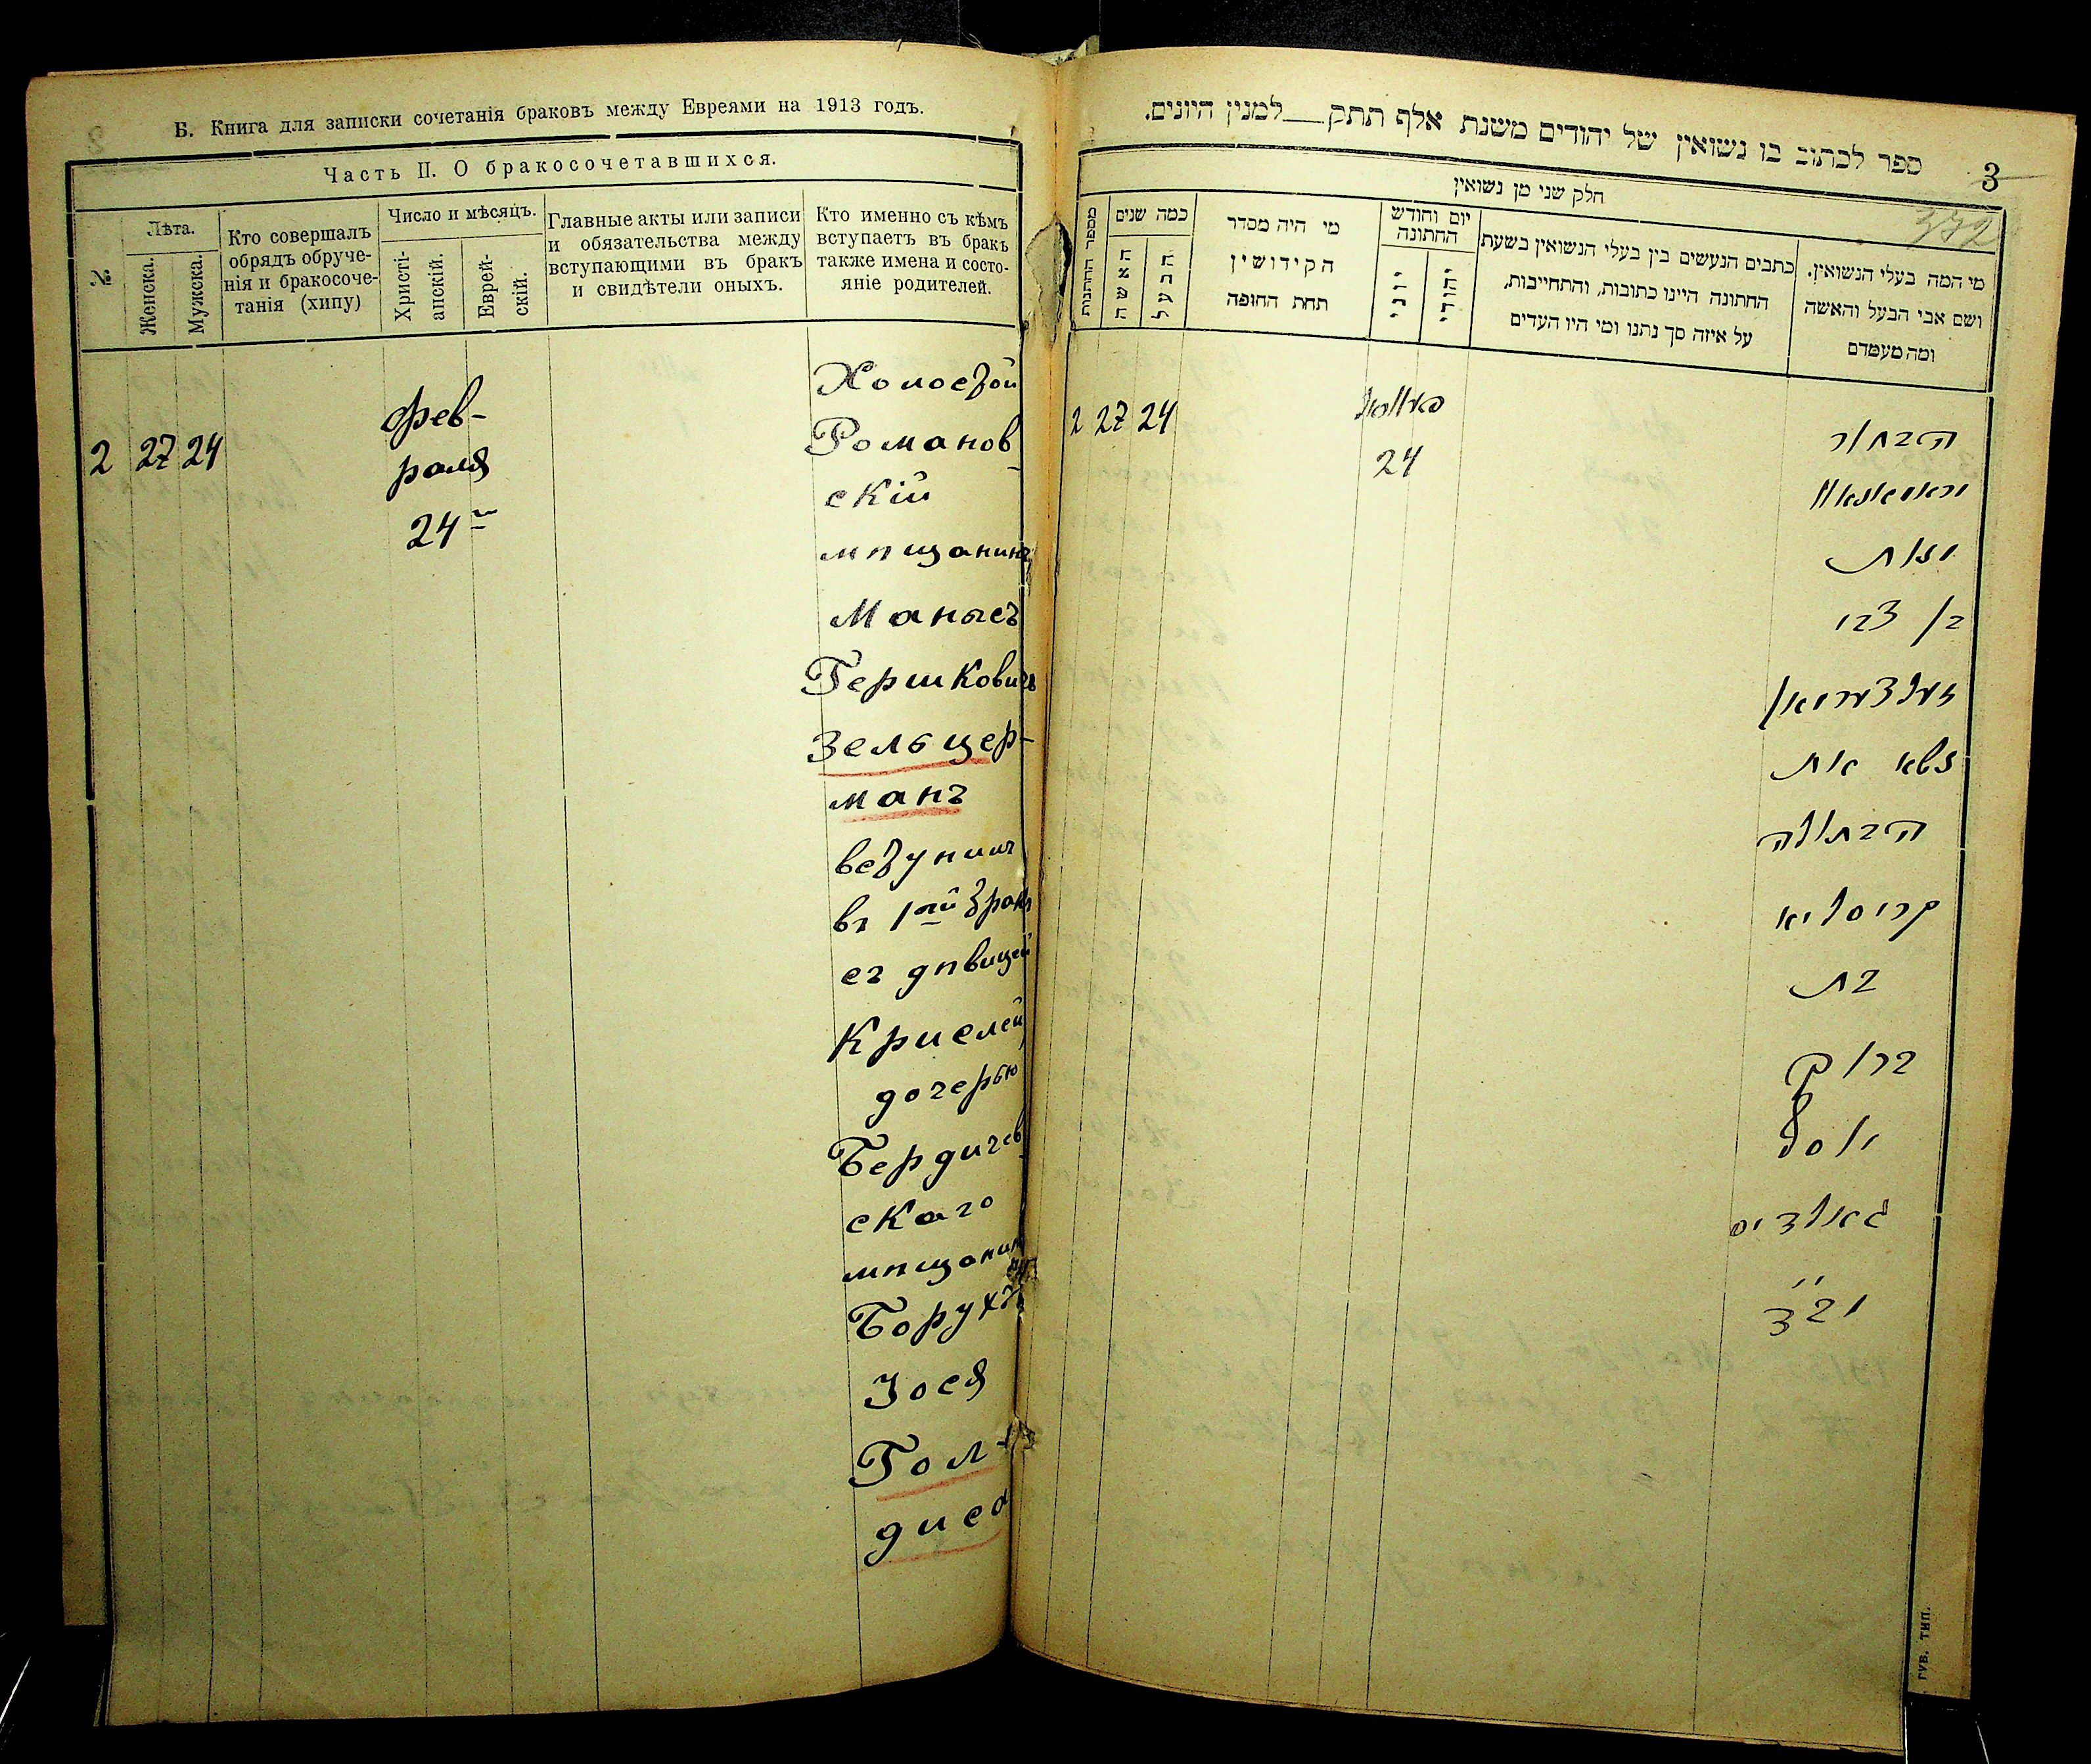 Б. Книга для записки сочетанія браковъ между Евреями на 1913 годъ.
Часть II. О бракосочетавшихся.
№
Лѣта.
Женска.
Мужска.
Кто совершалъ
обрядъ обруче-
нія и бракосоче-
танія (хипу)
Число и мѣсяцъ.
Христі-
анскій.
Еврей-
скій.
Главные акты или записи
и обязательства между
вступающими въ бракъ
и свидѣтели оныхъ.
Кто именно съ кѣмъ
вступаетъ въ бракъ
также имена и состо-
яніе родителей.
2 27 24
фев-
раля
24
Холостой
Романов
скій
мѣщанинъ
Манысъ
Гершковичъ
Зельцер-
манъ
вступилъ
въ 1ый бракъ
съ дѣвицей
Крислей
дочерью
Бердичев
скаго
мѣщанина
Боруха
Іося
Гол-
диса
ספר לכתוב בו נשואין של יהודים משנת אלף תתק למנין היונים.
3
372
חלק שני מן נשואין
מספר החתונות
כמה שנים
האשה
הבעל
מי היה מסדר
הקידושין
תחת החופה
יום וחודש
החתונה
יוני
יהודי
כתבים הנעשים בין בעלי הנשואין בשעת
החתונה היינו כתובות, והתחייבות,
על איזה סך נתנו ומי היו העדים
מי המה בעלי הנשואין.
ושם אבי הבעל והאשה
ומה מעמדם
2 27 24
24
הבחור
בן צבי
זעלצערמאן
נשא את
הבתולה
קריסליא
בת
ברוך
יוסף
גאלדיס
ГУБ. ТИП.